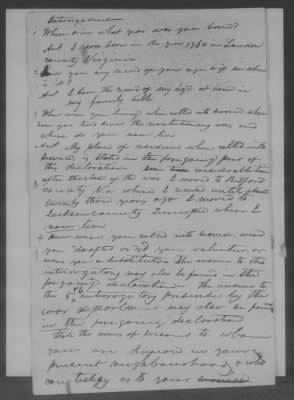 Interrogatories
1 Where & in what year was you born?
Ans I was born in the year 1760 in Loudon
county Virginia
2 Have you any record of your age & if so where
is it?
Ans I have the record of my age at home in
my family bible
3 Where were you living when called into service where
have you lived since the revolutionary war and
where do you now live
Ans My place of residence when called into
service is stated in the foregoing part of
this declaration
after the close of the war I moved to Bedford
county Va where I resided until about
twenty three years ago I moved to
Jackson county Tennessee where I
now live
4 How were you called into service, were
you drafted or did you volunteer, or
were you a substitute. The answer to this
interrogatory may also be found in the
foregoing declaration. The answer to
the 5th interrogatory prescribed by the
war department may also be found
in the foregoing declaration
State the names of persons to whom
you are known in your
present neighbourhood, & who
can testify as to your